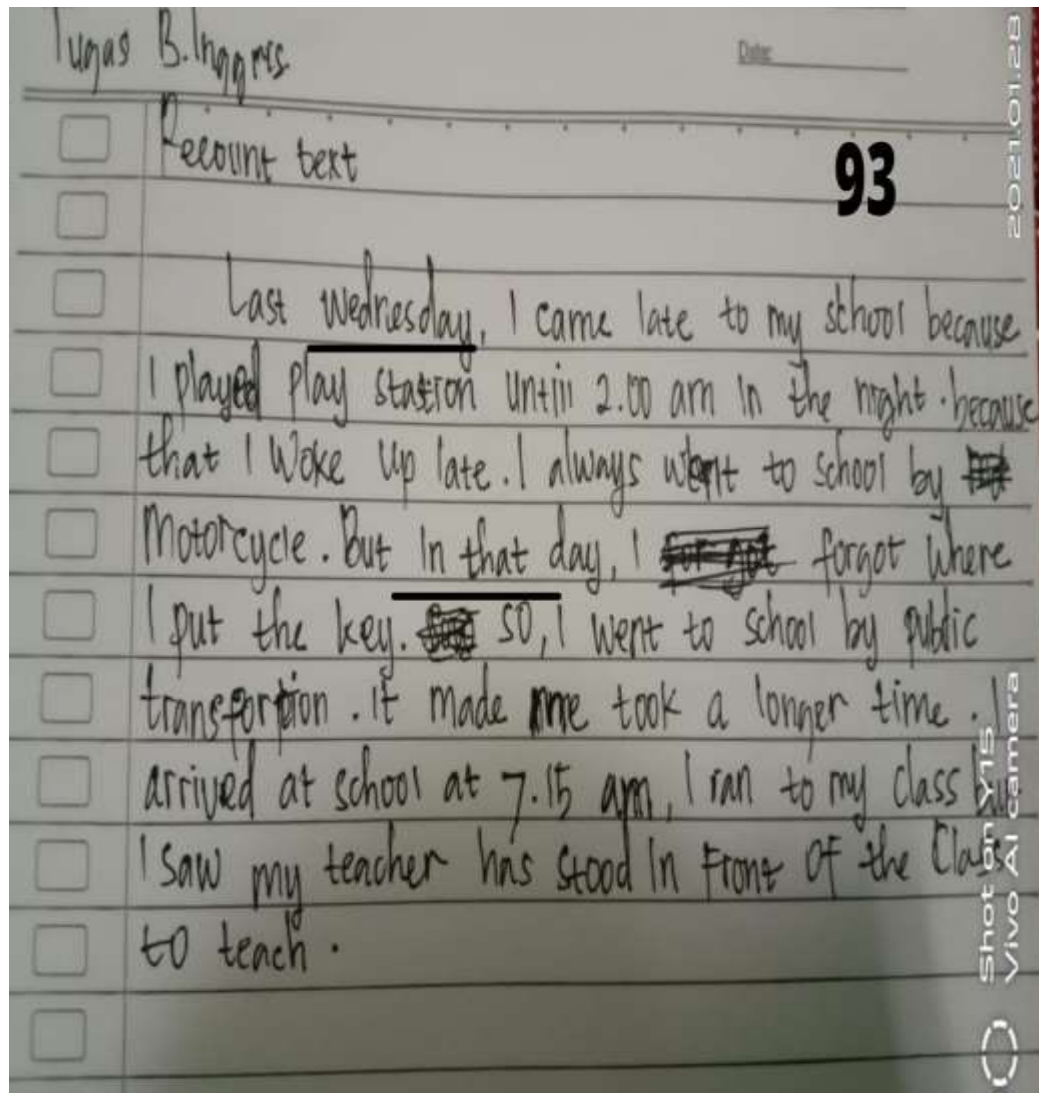 Tugas B.Inggris
Date:
Recount text
93
Last Wednesday, I came late to my school because
I played play station untill 2.00 am in the night. because
that I Woke up late. I always went to school by
Motorcycle. But in that day, I forgot where
I put the key. so, I went to school by public
transportion. it made me took a longer time. I
arrived at school at 7.15 am, I ran to my class but
I saw my teacher has stood in Front OF the Class
to teach.
2021.01.28
Shot on Y15
Vivo AI camera